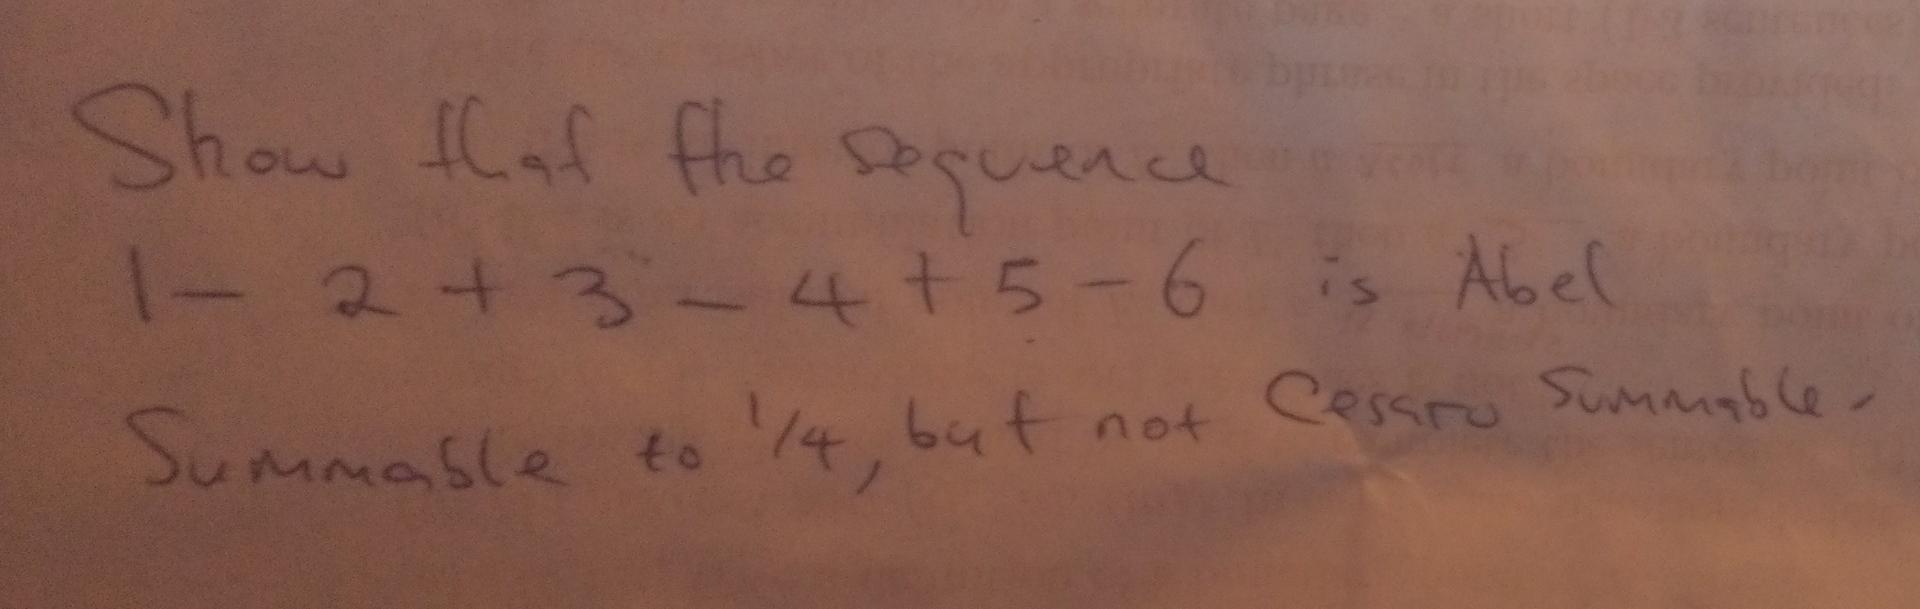 Show that the sequence
1 - 2 + 3 - 4 + 5 - 6 is Abel
Summable to 1/4, but not Cesaro Summable.